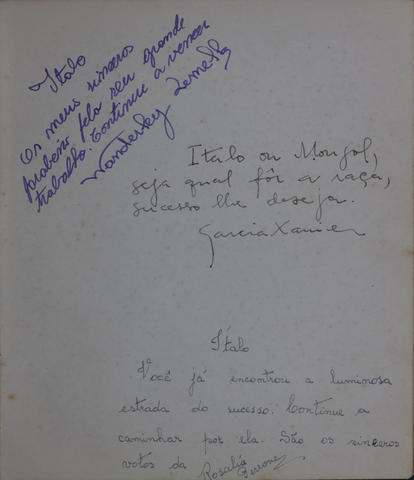 Italo
Os meus sinceros
parabens pelo seu grande
trabalho. Continue a vencer
Wanderley
Italo ou Mongol,
seja qual fôr a raça,
sucesso lhe deseja.
Garcia Xavier
Ítalo
Você já encontrou a luminosa
estrada do sucesso. Continue a
caminhar por ela. São os sinceros
votos da Rosalia Perrone